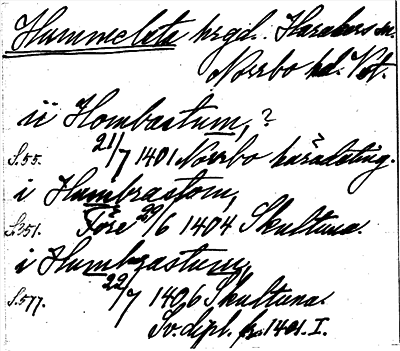 Hummelsta hrgd. Haraker sn.
Norrbo hd. Vstm.
ij Hombastum,?
S. 55. 21/7 1401 Norrbo häradsting.
i Humbrastom,
S. 351. Före 24/6 1404 Skultuna.
i Humbrastum,
S. 577. 22/7 1406 Skultuna.
Sv. dipl. fr. 1401. I.